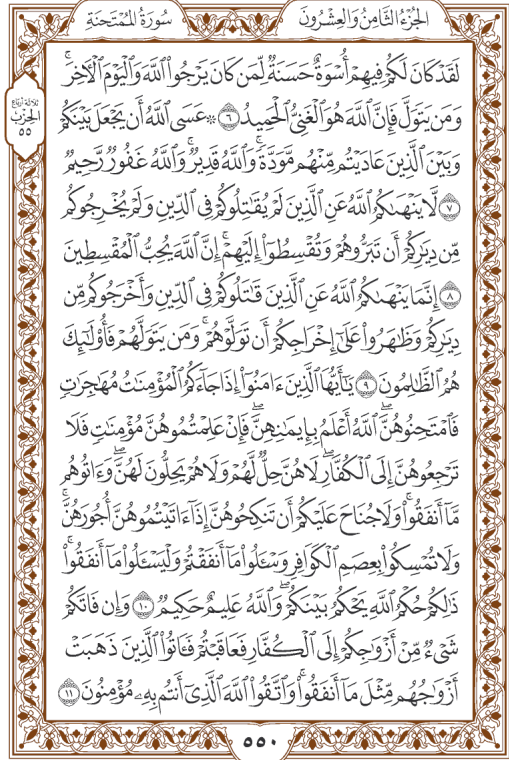 الجُزْءُ الثَّامِنُ وَالعِشْرُونَ
سُورَةُ المُمْتَحَنَةِ
ثلاثة أرباع
الحزب
٥٥
لَقَدْ كَانَ لَكُمْ فِيهِمْ أُسْوَةٌ حَسَنَةٌ لِّمَن كَانَ يَرْجُوا۟ ٱللَّهَ وَٱلْيَوْمَ ٱلْءَاخِرَ ۚ
وَمَن يَتَوَلَّ فَإِنَّ ٱللَّهَ هُوَ ٱلْغَنِىُّ ٱلْحَمِيدُ ٦ ۞ عَسَى ٱللَّهُ أَن يَجْعَلَ بَيْنَكُمْ
وَبَيْنَ ٱلَّذِينَ عَادَيْتُم مِّنْهُم مَّوَدَّةً ۚ وَٱللَّهُ قَدِيرٌ ۚ وَٱللَّهُ غَفُورٌ رَّحِيمٌ
٧ لَّا يَنْهَىٰكُمُ ٱللَّهُ عَنِ ٱلَّذِينَ لَمْ يُقَـٰتِلُوكُمْ فِى ٱلدِّينِ وَلَمْ يُخْرِجُوكُم
مِّن دِيَـٰرِكُمْ أَن تَبَرُّوهُمْ وَتُقْسِطُوٓا۟ إِلَيْهِمْ ۚ إِنَّ ٱللَّهَ يُحِبُّ ٱلْمُقْسِطِينَ
٨ إِنَّمَا يَنْهَىٰكُمُ ٱللَّهُ عَنِ ٱلَّذِينَ قَـٰتَلُوكُمْ فِى ٱلدِّينِ وَأَخْرَجُوكُم مِّن
دِيَـٰرِكُمْ وَظَـٰهَرُوا۟ عَلَىٰٓ إِخْرَاجِكُمْ أَن تَوَلَّوْهُمْ ۚ وَمَن يَتَوَلَّهُمْ فَأُو۟لَـٰٓئِكَ
هُمُ ٱلظَّـٰلِمُونَ ٩ يَـٰٓأَيُّهَا ٱلَّذِينَ ءَامَنُوٓا۟ إِذَا جَآءَكُمُ ٱلْمُؤْمِنَـٰتُ مُهَـٰجِرَٰتٍ
فَٱمْتَحِنُوهُنَّ ۖ ٱللَّهُ أَعْلَمُ بِإِيمَـٰنِهِنَّ ۖ فَإِنْ عَلِمْتُمُوهُنَّ مُؤْمِنَـٰتٍ فَلَا
تَرْجِعُوهُنَّ إِلَى ٱلْكُفَّارِ ۖ لَا هُنَّ حِلٌّ لَّهُمْ وَلَا هُمْ يَحِلُّونَ لَهُنَّ ۖ وَءَاتُوهُم
مَّآ أَنفَقُوا۟ ۚ وَلَا جُنَاحَ عَلَيْكُمْ أَن تَنكِحُوهُنَّ إِذَآ ءَاتَيْتُمُوهُنَّ أُجُورَهُنَّ ۚ
وَلَا تُمْسِكُوا۟ بِعِصَمِ ٱلْكَوَافِرِ وَسْـَٔلُوا۟ مَآ أَنفَقْتُمْ وَلْيَسْـَٔلُوا۟ مَآ أَنفَقُوا۟ ۚ
ذَٰلِكُمْ حُكْمُ ٱللَّهِ ۖ يَحْكُمُ بَيْنَكُمْ ۚ وَٱللَّهُ عَلِيمٌ حَكِيمٌ ١٠ وَإِن فَاتَكُمْ
شَىْءٌ مِّنْ أَزْوَٰجِكُمْ إِلَى ٱلْكُفَّارِ فَعَاقَبْتُمْ فَـَٔاتُوا۟ ٱلَّذِينَ ذَهَبَتْ
أَزْوَٰجُهُم مِّثْلَ مَآ أَنفَقُوا۟ ۚ وَٱتَّقُوا۟ ٱللَّهَ ٱلَّذِىٓ أَنتُم بِهِۦ مُؤْمِنُونَ ١١
٥٥٠